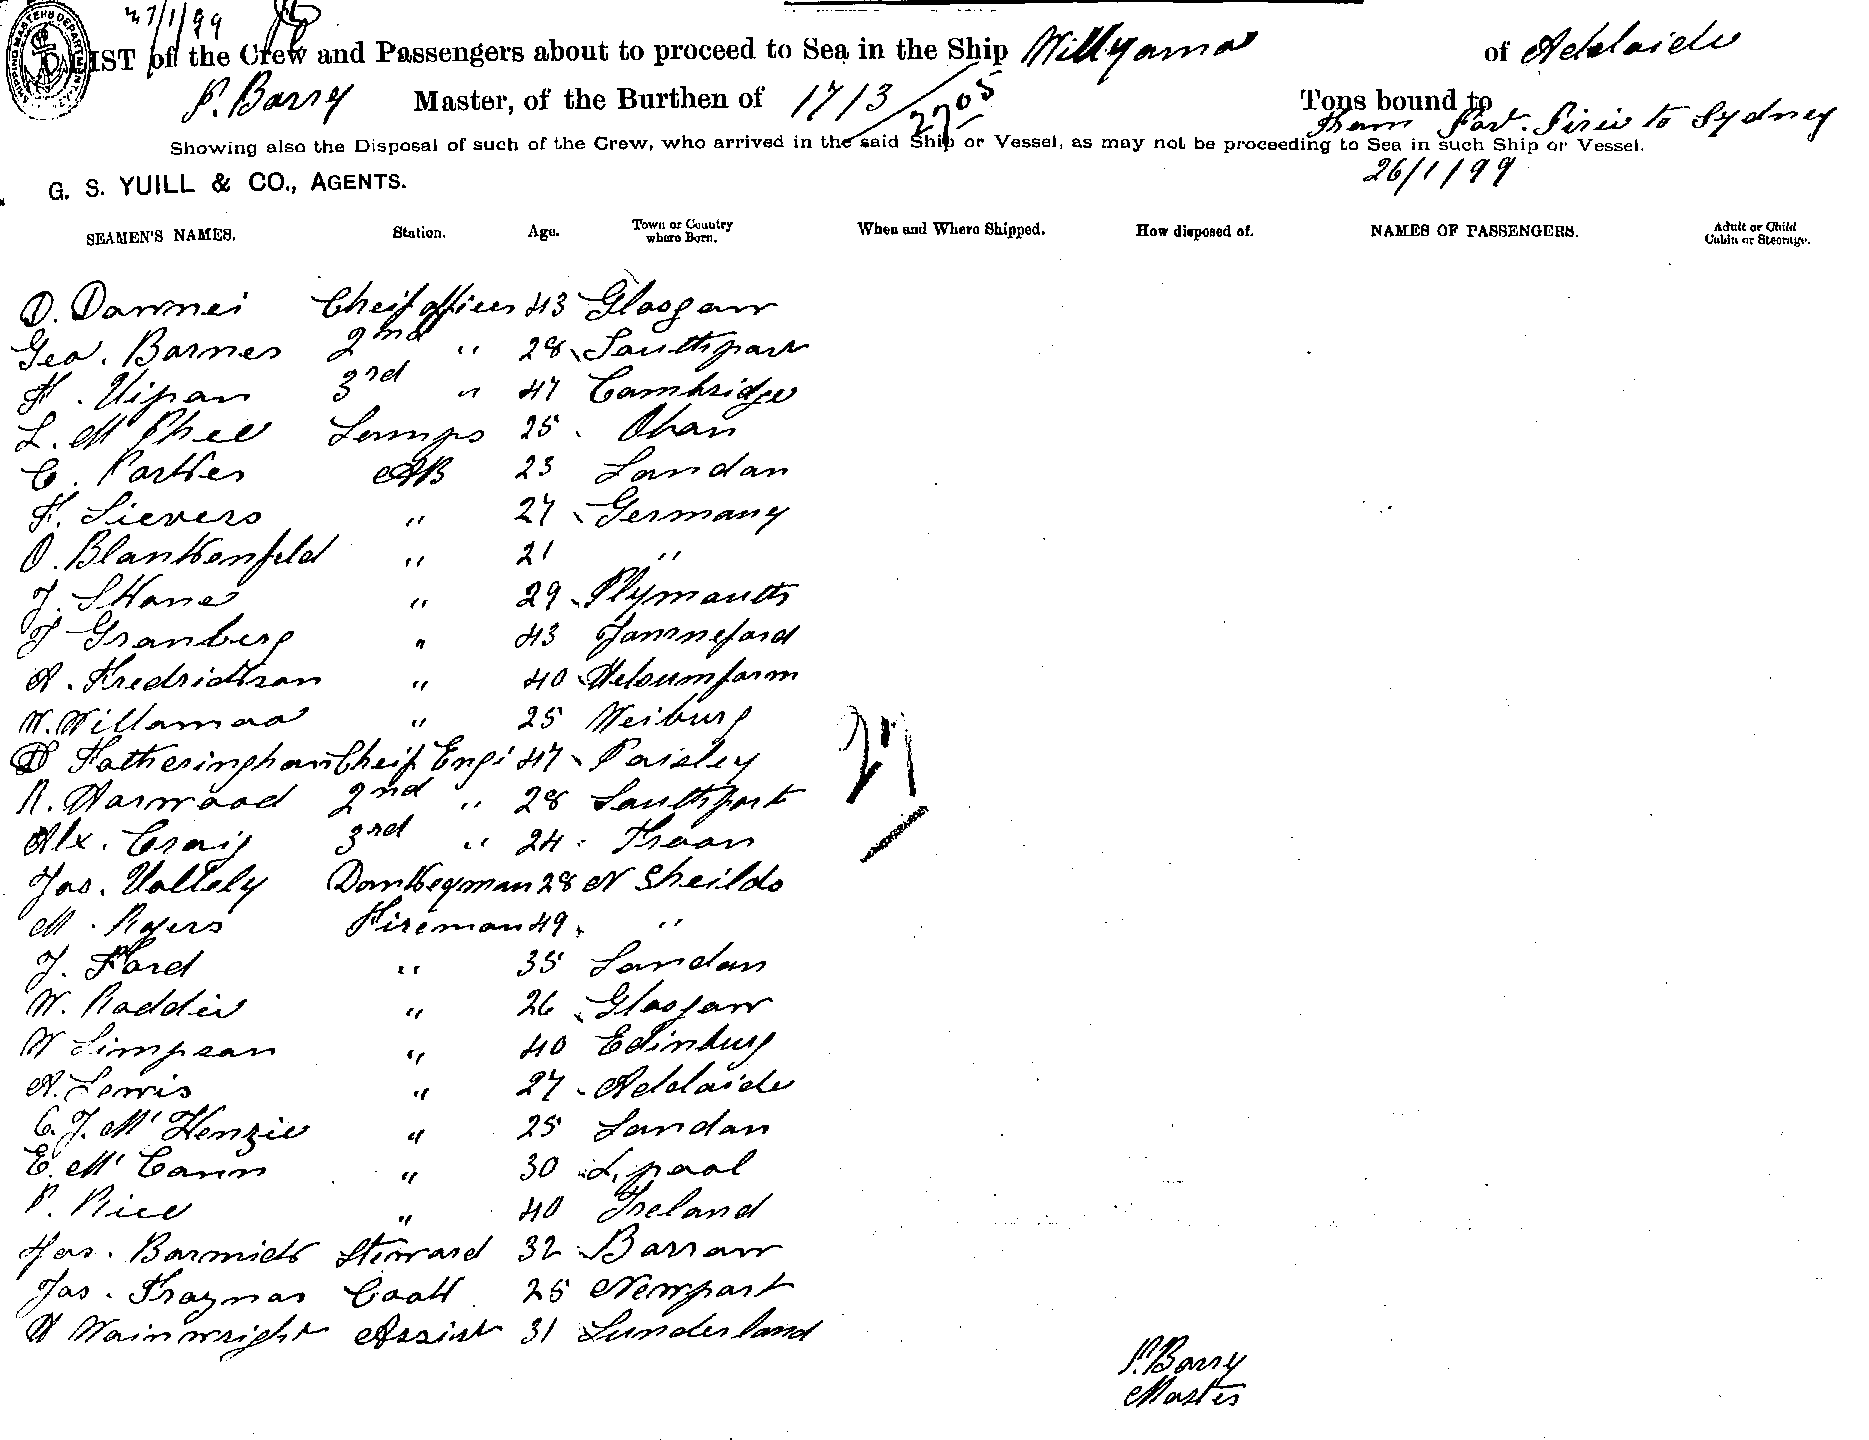 27/1/99
LIST of the Crew and Passengers about to proceed to Sea in the Ship Willyama of Adelaide
P. Barry Master, of the Burthen of 1713/2705 Tons bound to
from Port Pirie to Sydney
Showing also the Disposal of such of the Crew, who arrived in the said Ship or Vessel, as may not be proceeding to Sea in such Ship or Vessel.
26/1/99
G. S. YUILL & CO., AGENTS.
SEAMEN'S NAMES. Station. Age. Town or Country where Born. When and Where Shipped. How disposed of. NAMES OF PASSENGERS. Adult or Child Cabin or Steerage.
D. Downei Cheif officer 43 Glasgow
Geo. Barnes 2nd " 28 Southport
H. Vipan 3rd " 47 Cambridge
L. McPhee Lamps 25 Oban
C. Parkes AB 23 London
F. Sievers " 27 Germany
O. Blankenfeld " 21 "
J. Skone " 29 Plymouth
J Granberg " 43
A. Fredrickson " 40
W. Willamao " 25 Weiburg
D Fotheringham Cheif Engi 47 Paisley
R. Harwood 2nd " 28 Southport
Alx. Craig 3rd " 24 Troon
Jas. Vallely Donkeyman 28 N Sheilds
M. Ryers Fireman 49 "
J. Ford " 35 London
W. Roddie " 26 Glasgow
W Simpson " 40 Edinburg
A. Lewis " 27 Adelaide
C. J. McKenzie " 25 London
E. McCann " 30 L.pool
P. Rice " 40 Ireland
Jas. Barmick Steward 32 Barrow
Jas. Traynor Cook 25 Newport
H Wainwright Assist 31 Sunderland
27
P. Barry
Master